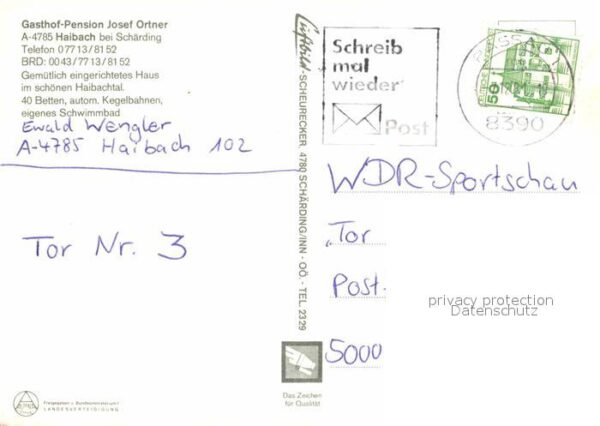 Gasthof-Pension Josef Ortner
A-4785 Haibach bei Schärding
Telefon 07713/8152
BRD: 0043/7713/8152
Gemütlich eingerichtetes Haus
im schönen Haibachtal.
40 Betten, autom. Kegelbahnen,
eigenes Schwimmbad
Ewald Wengler
A-4785 Haibach 102
Tor Nr. 3
Luftbild · SCHEURECKER, 4780 SCHÄRDING/INN · OÖ. · TEL. 2329
Schreib
mal
wieder
Post
50
8390
WDR-Sportschau
„Tor
Post.
5000
privacy protection
Datenschutz
Das Zeichen
für Qualität
Freigegeben v. Bundesministerium f.
LANDESVERTEIDIGUNG